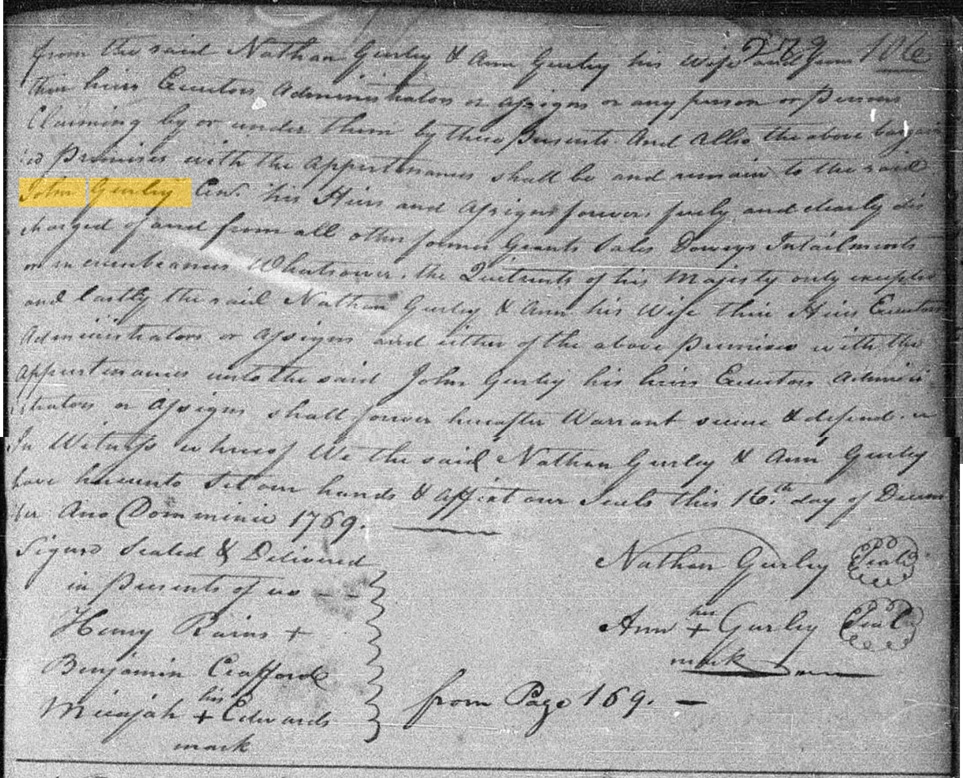 from the said Nathan Gurley & Ann Gurley his Wife and from 106
279
thin heirs Exeutors Administrators or Assigns or any person or Persons
Claiming by or under them by these Presents And Allso the above bargain
ed Premises with the Appurtenances shall be and remain to the said
John Gurley Cen. his Heirs and Assigns forever freely and clearly dis
charged of and from all other former Grants Sales Dowrys Intailments
or incumbrances Whatsoever, the Quitrents of his Majesty only excepted
and lastly the said Nathan Gurley & Ann his Wife their Heirs Exeutors
Administrators or Assigns and either of the above Premises with the
Appurtenances unto the said John Gurley his heirs Exeutors Admini
strators or Assigns shall forever hereafter Warrant secure & defend
In Witness whereof We the said Nathan Gurley & Ann Gurley
have hereunto Set our hands & affixt our Seals this 16th day of Decem
ber Ano Domminie 1769.
Signed Sealed & Delivered
in Presents of us
Henry Rains +
Benjamin Crafford
his
Micajah + Edwards
mark
Nathan Gurley Seal
her
Ann + Gurley Seal
mark
from Page 169.